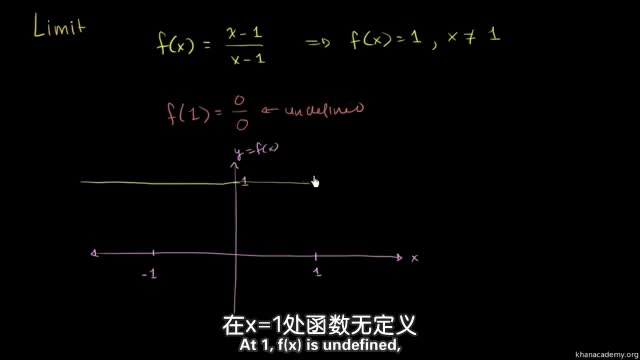 Limit
f(x) = x-1 / x-1 ⇒ f(x) = 1 , x ≠ 1
f(1) = 0/0 ← undefined
y=f(x)
1
x
-1 1
在x=1处函数无定义
At 1, f(x) is undefined,
khanacademy.org